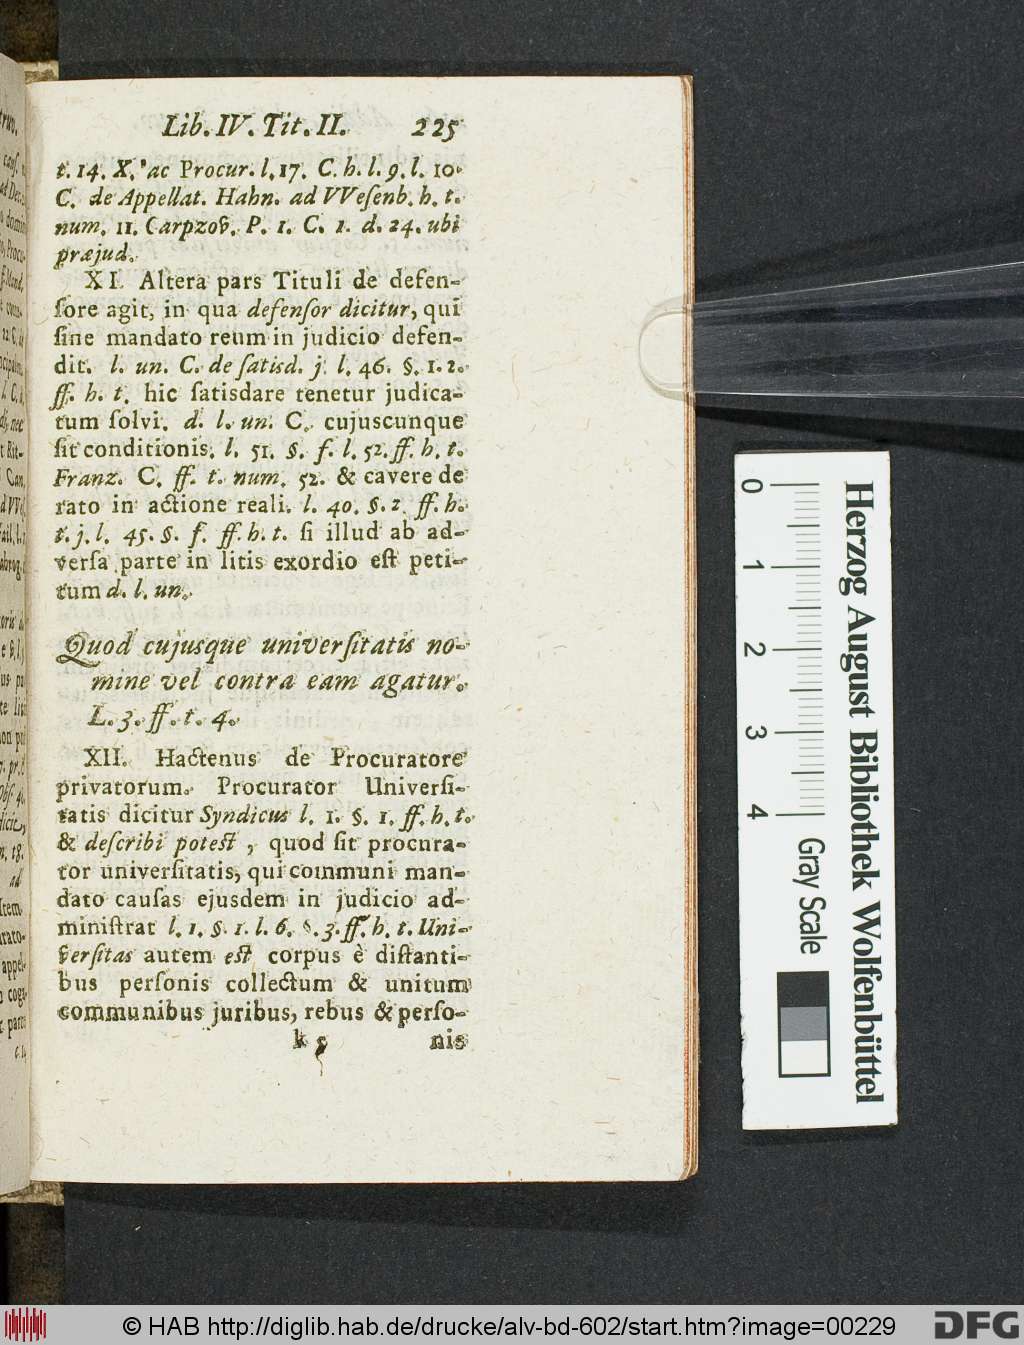 Lib. IV. Tit. II. 225
t. 14. X. ac Procur. l. 17. C. h. l. 9. l. 10.
C. de Appellat. Hahn. ad VVeſenb. h. t.
num. 11. Carpzov. P. 1. C. 1. d. 24. ubi
præjud.
XI. Altera pars Tituli de defen-
ſore agit, in qua defenſor dicitur, qui
ſine mandato reum in judicio defen-
dit. l. un. C. de ſatisd. j. l. 46. §. 1. 2.
ff. h. t. hic ſatisdare tenetur judica-
tum ſolvi. d. l. un. C. cujuscunque
ſit conditionis. l. 51. §. f. l. 52. ff. h. t.
Franz. C. ff. t. num. 52. & cavere de
rato in actione reali. l. 40. §. 2. ff. h.
t. j. l. 45. §. f. ff. h. t. ſi illud ab ad-
verſa parte in litis exordio eſt peti-
tum d. l. un.
Quod cujusque univerſitatis no-
mine vel contra eam agatur.
L. 3. ff. t. 4.
XII. Hactenus de Procuratore
privatorum. Procurator Univerſi-
tatis dicitur Syndicus l. 1. §. 1. ff. h. t.
& deſcribi poteſt, quod ſit procura-
tor univerſitatis, qui communi man-
dato cauſas ejusdem in judicio ad-
miniſtrat l. 1. §. 1. l. 6. §. 3. ff. h. t. Uni-
verſitas autem eſt corpus è diſtanti-
bus perſonis collectum & unitum
communibus juribus, rebus & perſo-
k 5 nis
0 1 2 3 4
Gray Scale
Herzog August Bibliothek Wolfenbüttel
© HAB http://diglib.hab.de/drucke/alv-bd-602/start.htm?image=00229
DFG